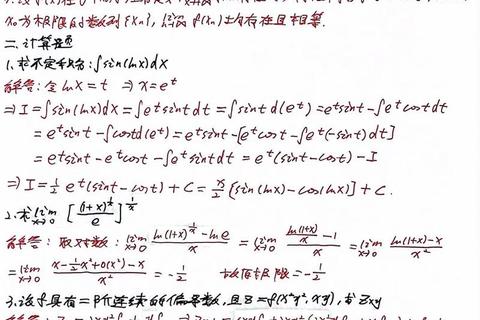 x₀为极限的数列{xₙ}, lim f(xₙ)均存在且相等.
二、计算题
1、求不定积分: ∫sin(lnx)dx
解答: 令 lnx = t ⇒ x = e^t
⇒ I = ∫sin(lnx)dx = ∫e^t sint dt = ∫sint d(e^t) = e^t sint - ∫e^t cost dt
= e^t sint - ∫cost d(e^t) = e^t sint - [e^t cost - ∫e^t(-sint)dt]
= e^t sint - e^t cost - ∫e^t sint dt = e^t(sint - cost) - I
⇒ I = 1/2 e^t(sint - cost) + C = x/2 [sin(lnx) - cos(lnx)] + C.
2、求 lim x→0 [(1+x)^(1/x) / e]^(1/x)
解答: 取对数: lim x→0 (ln(1+x)^(1/x) - lne)/x = lim x→0 (ln(1+x)/x - 1)/x = lim x→0 (ln(1+x) - x)/x²
= lim x→0 (x - 1/2 x² + o(x²) - x)/x² = -1/2 故原极限 = -1/2
3、设f具有二阶连续的偏导数, 且 z = f(x²y², xy), 求 Zxy